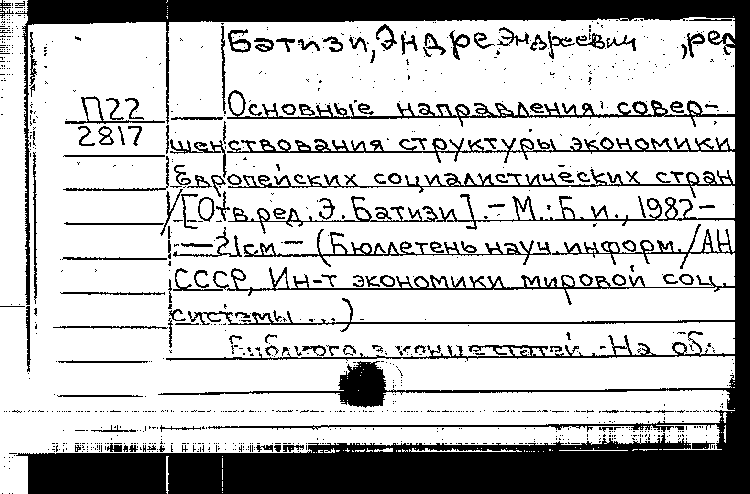 Батизи, Эндре Эндреевич , ред
П22
2817
Основные направления совер-
шенствования структуры экономики
Европейских социалистических стран
/[Отв.ред. Э. Батизи]. – М.: Б. и., 1982 –
. — 21см – (Бюллетень науч. информ. / АН
СССР, Ин-т экономики мировой соц.
системы ...)
Библиогр. в конце статей. - На обл.